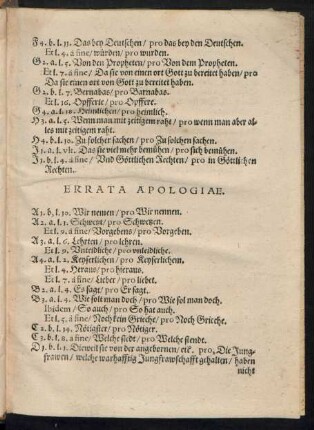 F4. b. l. 11. Das bey Deutschen / pro das bey den Deutschen.
Et l. 4. á fine / würden / pro wurden.
G2. a. l. 5. Von den Propheten / pro Von dem Propheten.
Et l. 7. á fine / Da sie von einen ort Gott zu bereitet haben / pro
Da sie einen ort von Gott zu bereitet haben.
G2. b. l. 7. Bernabas / pro Barnabas.
Et l. 16. Opfferte / pro Opffere.
G4. a. l. 18. Heimlichen / pro heimlich.
H3. a. l. 5. Wenn man mit zeitigem raht / pro wenn man aber al-
les mit zeitigem raht.
H4. b. l. 10. Zu solcher sachen / pro Zu solchen sachen.
I1. a. l. vlt. Das sie viel mehr bemühen / pro sich bemühen.
I3. b. l. 4. á fine / Vnd Göttlichen Rechten / pro in Göttlichen
Rechten.
ERRATA APOLOGIAE.
A1. b. l. 10. Wir nemen / pro Wir nennen.
A2. a. l. 1. Schwent / pro Schweizen.
Et l. 9. á fine / Vorgebens / pro Vorgeben.
A3. a. l. 6. Lehrten / pro lehren.
Et l. 9. Vnteidliche / pro vnleidliche.
A4. a. l. 2. Keyserlichen / pro Keyserlichem.
Et l. 4. Heraus / pro hieraus.
Et l. 7. á fine / Lieber / pro liebet.
B2. a. l. 4. Es sagt / pro Er sagt.
B3. a. l. 4. Wie solt man doch / pro Wie sol man doch.
Ibidem / So auch / pro So hat auch.
Et l. 5. á fine / Noch kein Grieche / pro Noch Grieche.
C2. b. l. 19. Nötigster / pro Nötiger.
C3. b. l. 8. á fine / Welche siedt / pro Welche stendt.
D1. b. l. 1. Dieweil sie von der angebornen / etc. pro, Die Jung-
frawen / welche warhafftig Jungfrawschafft gehalten / haben
nicht